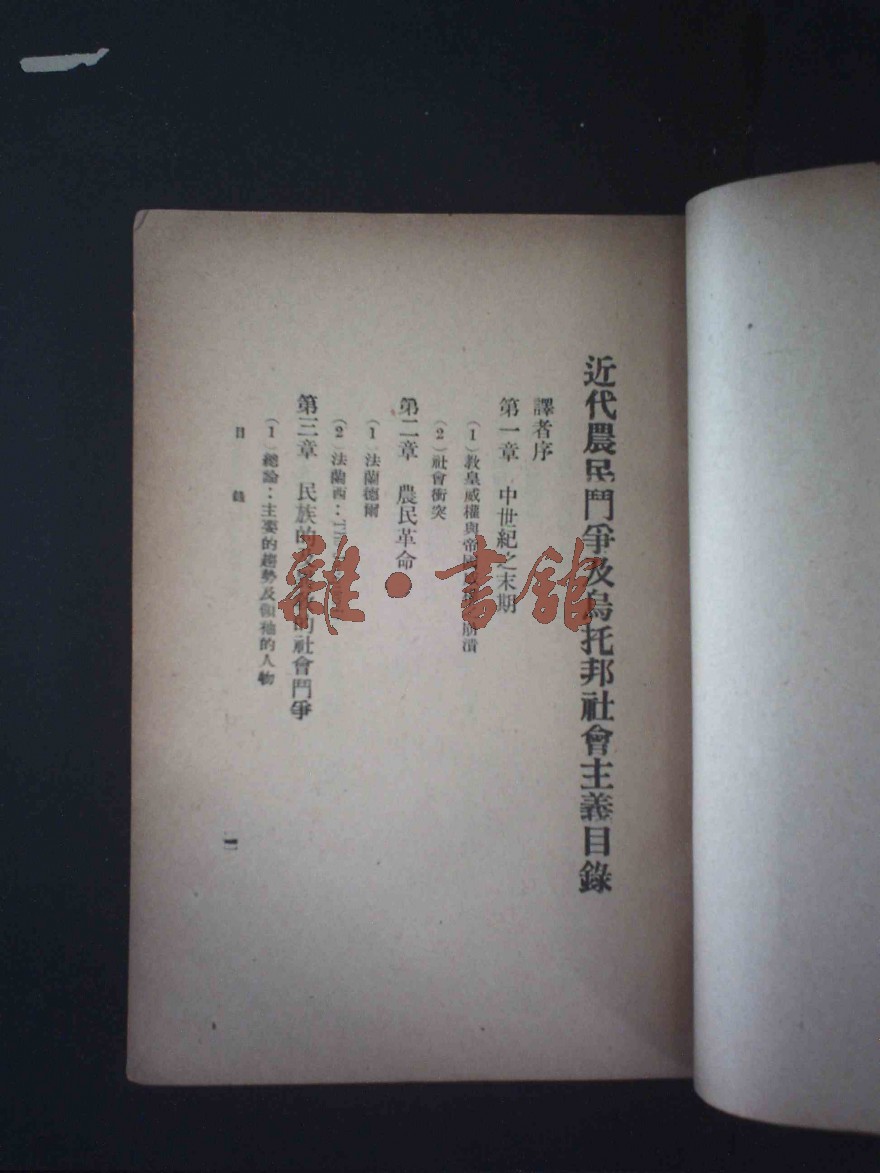 近代農民鬥爭及烏托邦社會主義目錄
譯者序
第一章 中世紀之末期
(1)教皇威權與帝國 崩潰
(2)社會衝突
第二章 農民革命
(1)法蘭德爾
(2)法蘭西:
第三章 民族的 的社會鬥爭
(1)總論:主要的趨勢及領袖的人物
目錄
一
雜·書館